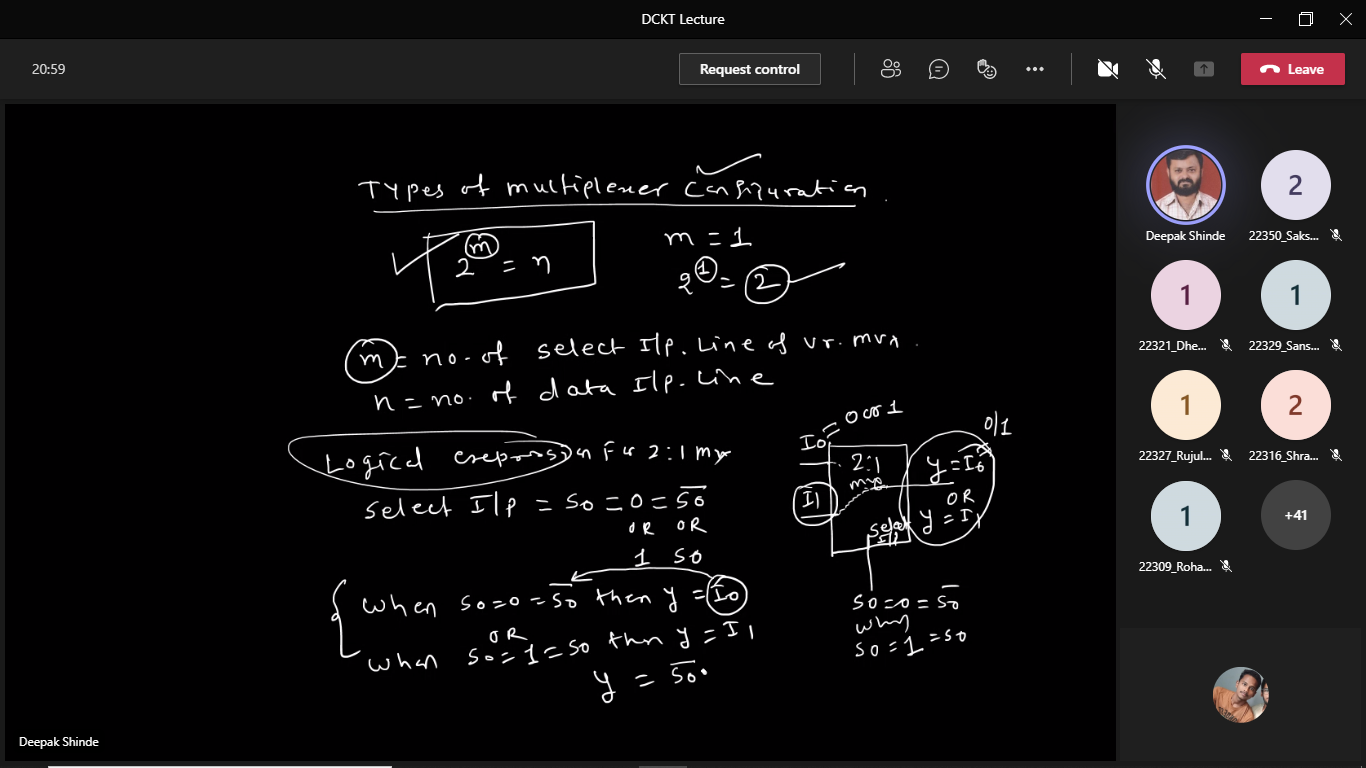 DCKT Lecture
20:59
Request control
Leave
Types of multiplexer configuration
2^m = n
m = 1
2^1 = 2
m = no. of select I/p. Line of
n = no. of data I/p. Line
Logical for 2:1 mux
select I/p = S0 = 0 = S̅0̅
OR OR
1 S0
when S0=0=S̅0̅ then y = I0
OR
when S0=1=S0 then y = I1
y = S̅0̅.
I0 = 0 or 1
I1
2:1
mux
select
I/p
0/1
y = I0
OR
y = I1
S0=0=S̅0̅
when
S0=1=S0
Deepak Shinde
Deepak Shinde
2
22350_Saks...
1
22321_Dhe...
1
22329_Sans...
1
22327_Rujul...
2
22316_Shra...
1
22309_Roha...
+41